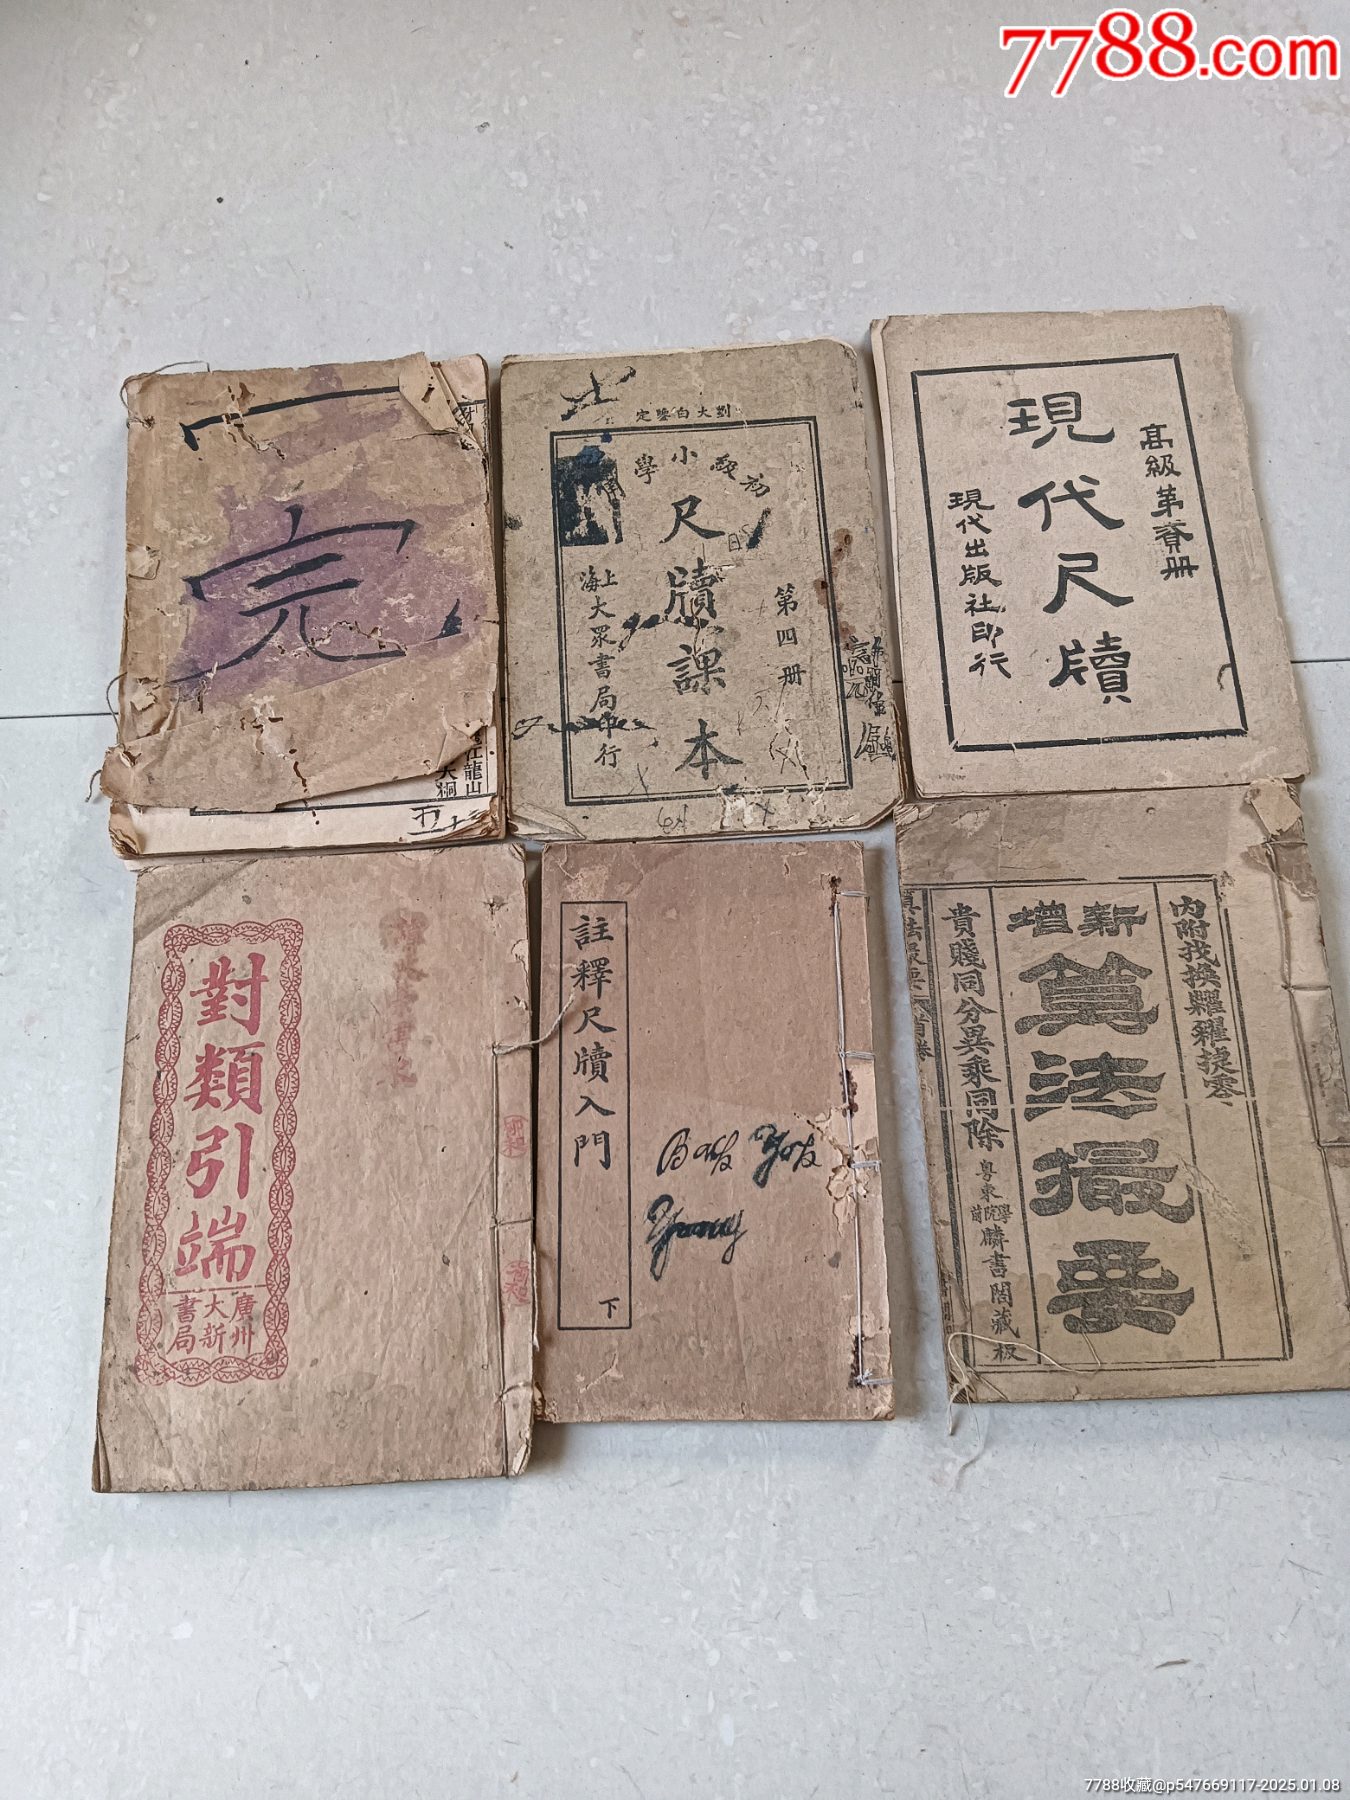 7788.com
完
江龍山
大桐
劉大白鑒定
初級小學
尺牘課本
第四册
上海大眾書局印行
現代尺牘
高級第叁册
現代出版社印行
對類引端
廣州大新書局
註釋尺牘入門
下
內附找換糶糴捷零
新增
算法撮要
貴賤同分異乘同除
粵東學院前麟書閣藏板
7788收藏@p547669117-2025.01.08